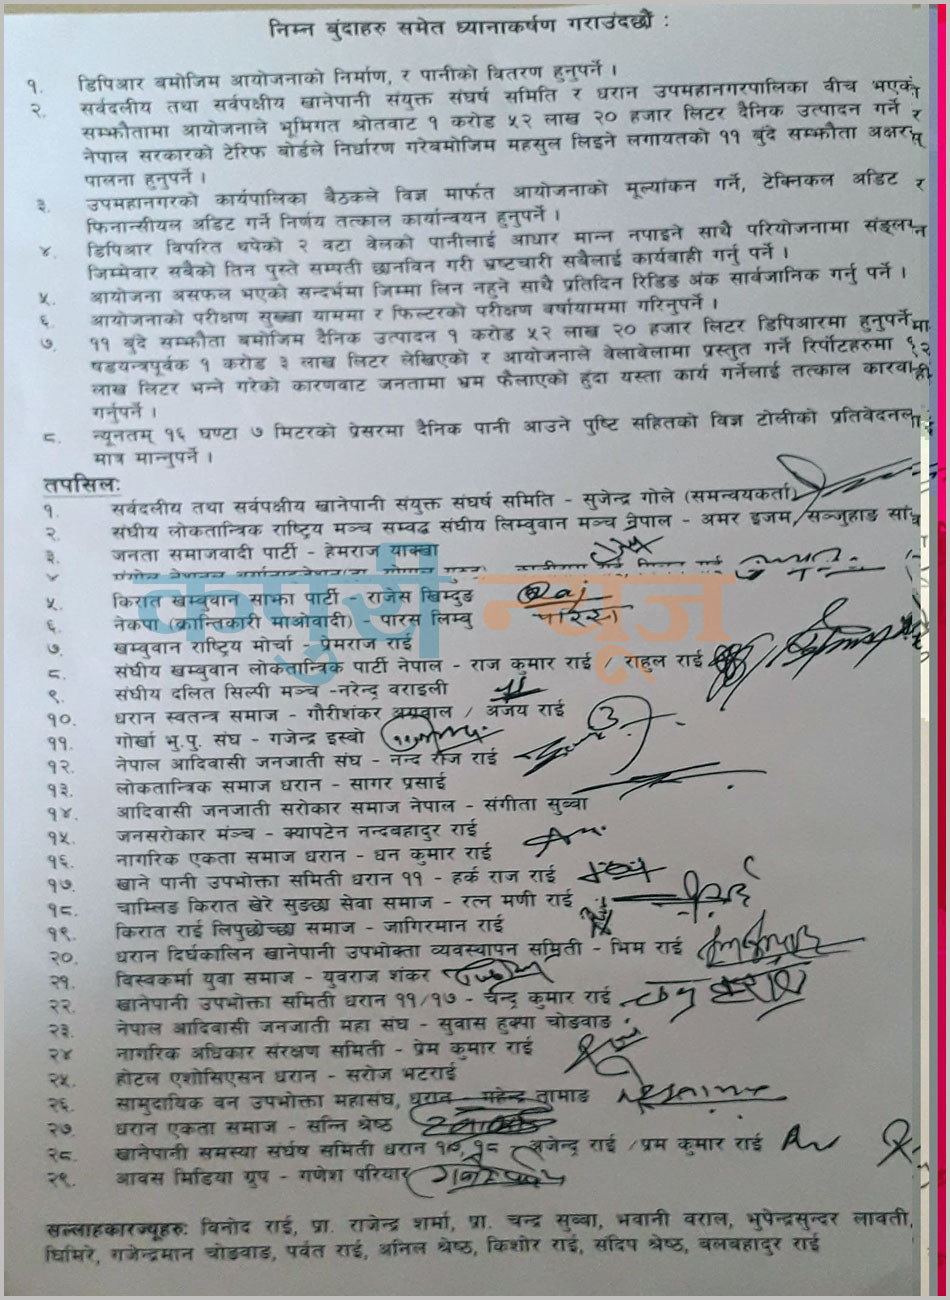 निम्न बुंदाहरु समेत ध्यानाकर्षण गराउंदछौं :
१. डिपिआर बमोजिम आयोजनाको निर्माण, र पानीको वितरण हुनुपर्ने ।
२. सर्वदलीय तथा सर्वपक्षीय खानेपानी संयुक्त संघर्ष समिति र धरान उपमहानगरपालिका वीच भएको
सम्झौतामा आयोजनाले भूमिगत श्रोतवाट १ करोड ५२ लाख २० हजार लिटर दैनिक उत्पादन गर्ने र
नेपाल सरकारको टेरिफ बोर्डले निर्धारण गरेबमोजिम महसुल लिइने लगायतको ११ बुंदे सम्झौता अक्षरस
पालना हुनुपर्ने ।
३. उपमहानगरको कार्यपालिका बैठकले विज्ञ मार्फत आयोजनाको मूल्यांकन गर्ने, टेक्निकल अडिट र
फिनान्सीयल अडिट गर्ने निर्णय तत्काल कार्यान्वयन हुनुपर्ने ।
४. डिपिआर विपरित थपेको २ वटा वेलको पानीलाई आधार मान्न नपाइने साथै परियोजनामा संङ्लग्न
जिम्मेवार सबैको तिन पुस्ते सम्पती छानविन गरी भ्रष्टचारी सबैलाई कार्यवाही गर्नु पर्ने ।
५. आयोजना असफल भएको सन्दर्भमा जिम्मा लिन नहुने साथै प्रतिदिन रिडिङ अंक सार्वजानिक गर्नु पर्ने ।
६. आयोजनाको परीक्षण सुख्खा याममा र फिल्टरको परीक्षण बर्षायाममा गरिनुपर्ने ।
७. ११ बुंदे सम्झौता बमोजिम दैनिक उत्पादन १ करोड ५२ लाख २० हजार लिटर डिपिआरमा हुनुपर्नेमा
षडयन्त्रपूर्वक १ करोड ३ लाख लिटर लेखिएको र आयोजनाले वेलावेलामा प्रस्तुत गर्ने रिर्पोटहरुमा १२
लाख लिटर भन्ने गरेको कारणवाट जनतामा भ्रम फैलाएको हुंदा यस्ता कार्य गर्नेलाई तत्काल कारवाही
गर्नुपर्ने ।
८. न्यूनतम् १६ घण्टा ७ मिटरको प्रेसरमा दैनिक पानी आउने पुष्टि सहितको विज्ञ टोलीको प्रतिवेदनलाई
मात्र मान्नुपर्ने ।
तपसिल:
१. सर्वदलीय तथा सर्वपक्षीय खानेपानी संयुक्त संघर्ष समिति - सुजेन्द्र गोले (समन्वयकर्ता)
२. संघीय लोकतान्त्रिक राष्ट्रिय मञ्च सम्वद्ध संघीय लिम्बुवान मञ्च नेपाल - अमर इजम, सञ्जुहाङ
३. जनता समाजवादी पार्टी - हेमराज याक्खा
४
५. किरात खम्बुवान साझा पार्टी - राजेस खिम्दुङ
६. नेकपा (क्रान्तिकारी माओवादी) - पारस लिम्बु पारस
७. खम्बुवान राष्ट्रिय मोर्चा - प्रेमराज राई
८. संघीय खम्बुवान लोकतान्त्रिक पार्टी नेपाल - राज कुमार राई / राहुल राई
९. संघीय दलित सिल्पी मञ्च -नरेन्द्र वराइली
१०. धरान स्वतन्त्र समाज - गौरीशंकर अग्रवाल / अजय राई
११. गोर्खा भु.पु. संघ - गजेन्द्र इस्वो
१२. नेपाल आदिवासी जनजाती संघ - नन्द राज राई
१३. लोकतान्त्रिक समाज धरान - सागर प्रसाई
१४. आदिवासी जनजाती सरोकार समाज नेपाल - संगीता सुब्बा
१५. जनसरोकार मंञ्च - क्यापटेन नन्दबहादुर राई
१६. नागरिक एकता समाज धरान - धन कुमार राई
१७. खाने पानी उपभोक्ता समिती धरान ११ - हर्क राज राई
१८. चाम्लिङ किरात खेरे सुङछा सेवा समाज - रत्न मणी राई
१९. किरात राई लिपुछोच्छा समाज - जागिरमान राई
२०. धरान दिर्घकालिन खानेपानी उपभोक्ता व्यवस्थापन समिती - भिम राई
२१. विस्वकर्मा युवा समाज - युवराज शंकर
२२. खानेपानी उपभोक्ता समिती धरान ११/१७ - चन्द्र कुमार राई
२३. नेपाल आदिवासी जनजाती महा संघ - सुवास हुक्पा चोङवाङ
२४ नागरिक अधिकार संरक्षण समिती - प्रेम कुमार राई
२५. होटल एशोसिएसन धरान - सरोज भटराई
२६. सामुदायिक वन उपभोक्ता महासंघ, धरान - महेन्द्र तामाङ
२७ धरान एकता समाज - सन्नि श्रेष्ठ
२८. खानेपानी समस्या संर्घष समिती धरान १०, १८ - अजेन्द्र राई /प्रम कुमार राई
२९. आवस मिडिया ग्रुप - गणेश परियार
सल्लाहकारज्यूहरु: विनोद राई, प्रा. राजेन्द्र शर्मा, प्रा. चन्द्र सुब्बा, भवानी वराल, भुपेन्द्रसुन्दर लावती,
घिमिरे, गजेन्द्रमान चोङवाङ, पर्वत राई, अनिल श्रेष्ठ, किशोर राई, संदिप श्रेष्ठ, बलबहादुर राई
कपुरी न्यूज